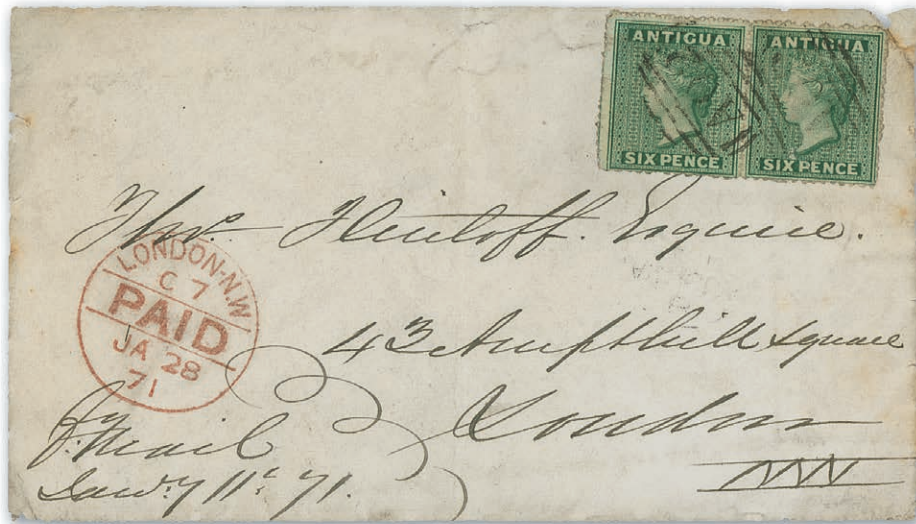 ANTIGUA
SIX PENCE
ANTIGUA
SIX PENCE
Thos. Flintoff. Esquire.
LONDON-N.W
C 7
PAID
JA 28
71
43 Ampthill Square
London
NW
Mail
Jany 11th 71.